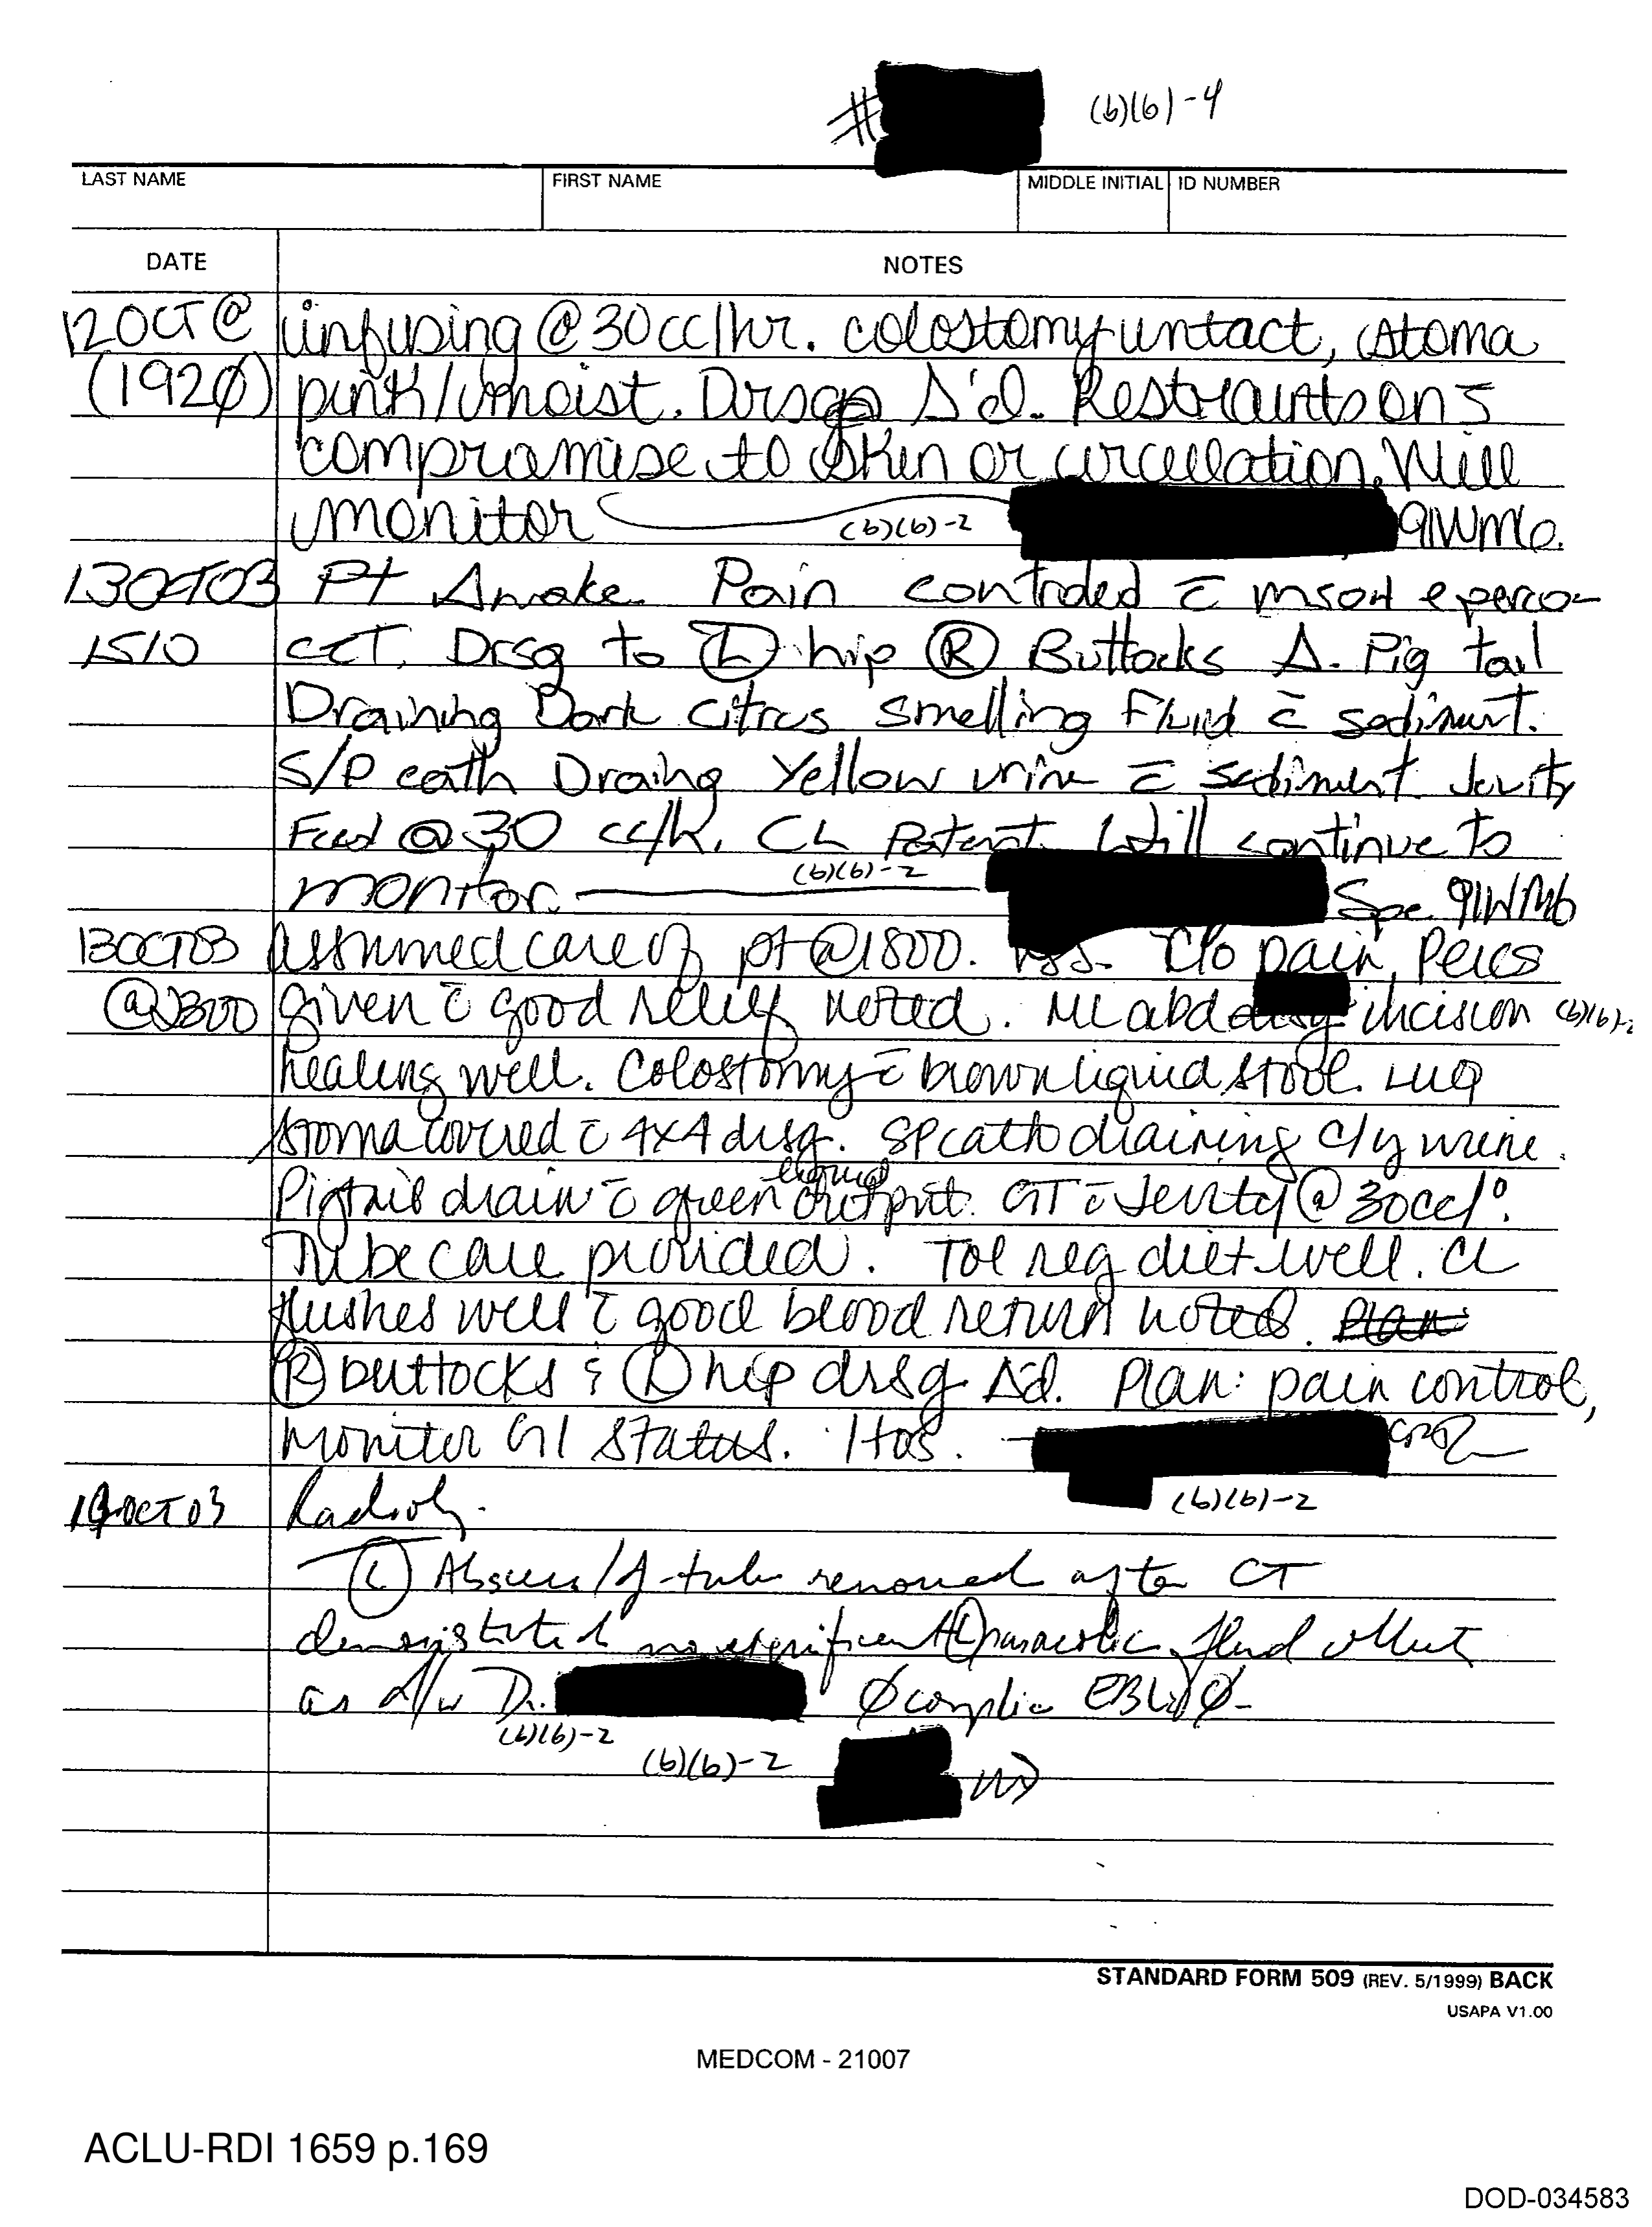 # (b)(6)-4
LAST NAME FIRST NAME MIDDLE INITIAL ID NUMBER
DATE NOTES
12OCT@ infusing @ 30cc/hr. colostomy intact, stoma
(192Ø) pink/moist. Drsgs Δ'd. Restraints on s̄
compromise to skin or circulation. Will
monitor (b)(6)-2 91WM6.
13OCT03 Pt Awake. Pain controled c̄ mso4 e perco-
1510 cet. Drsg to Ⓛ hip Ⓡ Buttocks Δ. Pig tail
Draining Dark citrus smelling Fluid c̄ sediment.
S/P cath Draing Yellow urine c̄ sediment Jevity
Feed @ 30 cc/h. CL Patent. Will continue to
monitor. (b)(6)-2 Spc 91WM6
13OCT03 assumed care of pt @1800. VSS. C/o pain, Percs
@2300 given c̄ good relief noted. ML abd incision (b)(6)-2
healing well. Colostomy c̄ brown liquid stool. LUQ
stoma covered c̄ 4x4 drsg. SP cath draining c/y urine.
Pigtail drain c̄ green liquid output. GT c̄ Jevity @ 30cc/°.
Tube care provided. Tol reg diet well. CL
flushes well c̄ good blood return noted. Plan
Ⓡ buttocks & Ⓛ hip drsg Δ'd. Plan: pain control,
moniter GI status.
(b)(6)-2
OCT03 Radiology.
Ⓛ Abscess/ -tube removed after CT
demonstrated no significant Ⓛ paracolic fluid collect
as d/w Dr. Ø complic EBL Ø
(b)(6)-2
(b)(6)-2 MD
STANDARD FORM 509 (REV. 5/1999) BACK
USAPA V1.00
MEDCOM - 21007
ACLU-RDI 1659 p.169
DOD-034583